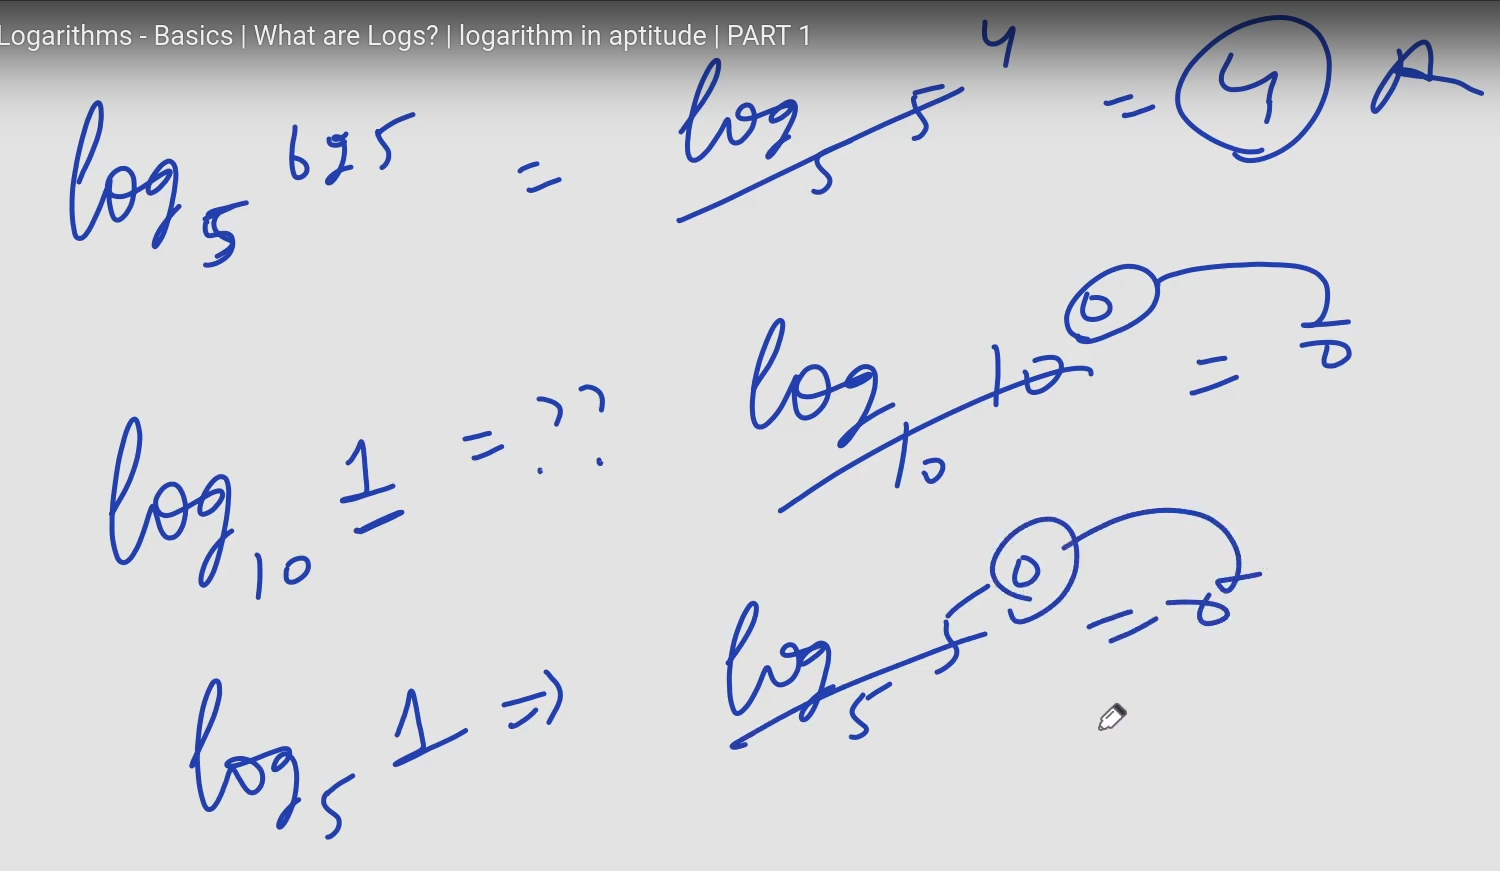 Logarithms - Basics | What are Logs? | logarithm in aptitude | PART 1
log₅ 625 = log₅ 5⁴ = 4
log₁₀ 1 = ?? log₁₀ 10⁰ = 0
log₅ 1 ⇒ log₅ 5⁰ = 0